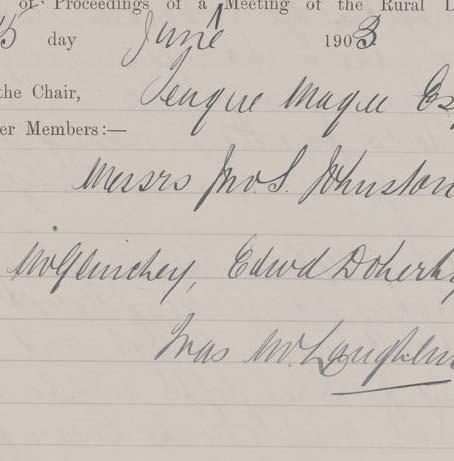 of Proceedings of a Meeting of the Rural D
15 day June 1903.
the Chair, Teague Magee Es
er Members:—
Messrs Jno. S. Johnston
McGlinchey, Edwd Doherty
Jnas McLaughlin